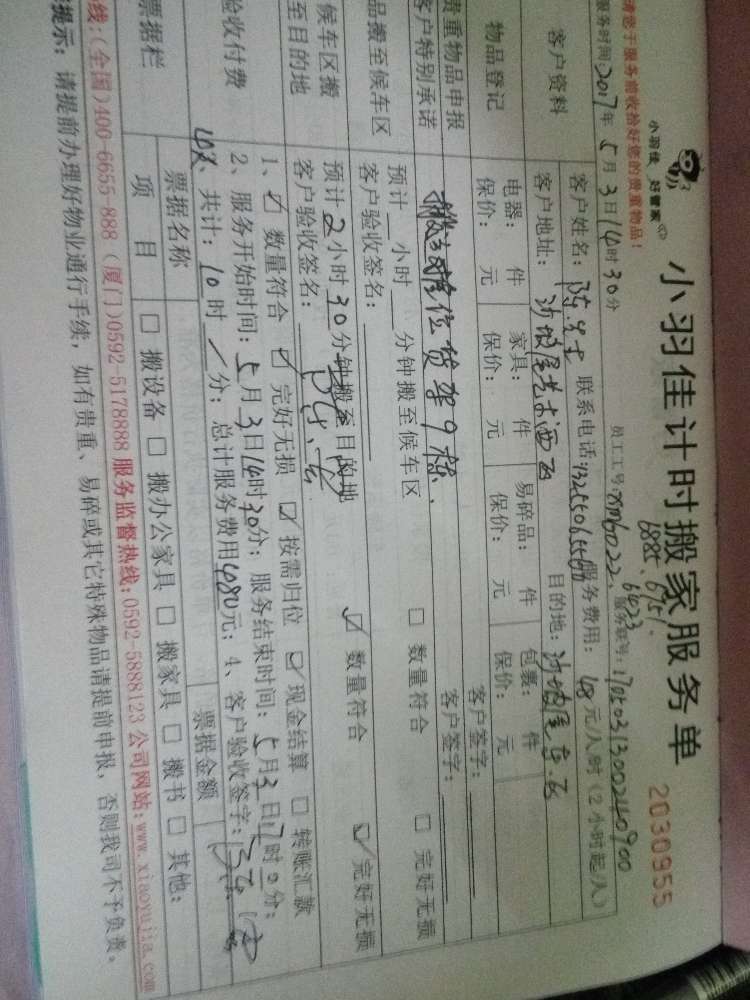 小羽佳 好管家
小羽佳计时搬家服务单
2030955
请您于服务前收拾好您的贵重物品！
服务时间：2017年5月3日14时30分
员工工号：xm6022、6423
6885、6751、
服务账号：
客户资料
客户姓名：陈先生 联系电话： 服务费用：48元/人时（2小时起/人）
客户地址：沙坡尾艺术西区 目的地：沙坡尾东.区
物品登记
电器： 件 家具： 件 易碎品： 件 包裹： 件
保价： 元 保价： 元 保价： 元 保价： 元
贵重物品申报
客户签字：
客户特别承诺
货架9栋、
客户签字：
品搬至候车区
预计 小时 分钟搬至候车区 □ 数量符合 □ 完好无损
客户验收签名：
候车区搬
至目的地
预计2小时30分钟搬至目的地 ☑ 数量符合 ☑ 完好无损
客户验收签名：
验收付费
1、☑ 数量符合 ☑ 完好无损 ☑ 按需归位 ☑ 现金结算 □ 转账汇款
2、服务开始时间：5月3日14时30分；服务结束时间：5月3日17时0分；
共计：10时/分；总计服务费用480元；4、客户验收签字：
票据栏
票据名称 票据金额
项 目 □ 搬设备 □ 搬办公家具 □ 搬家具 □ 搬书 □ 其他：
线：（全国）400-6655-888（厦门）0592-5178888 服务监督热线：0592-5888123 公司网站：www.xiaoyujia.com
提示：请提前办理好物业通行手续，如有贵重、易碎或其它特殊物品请提前申报，否则我司不予负责。